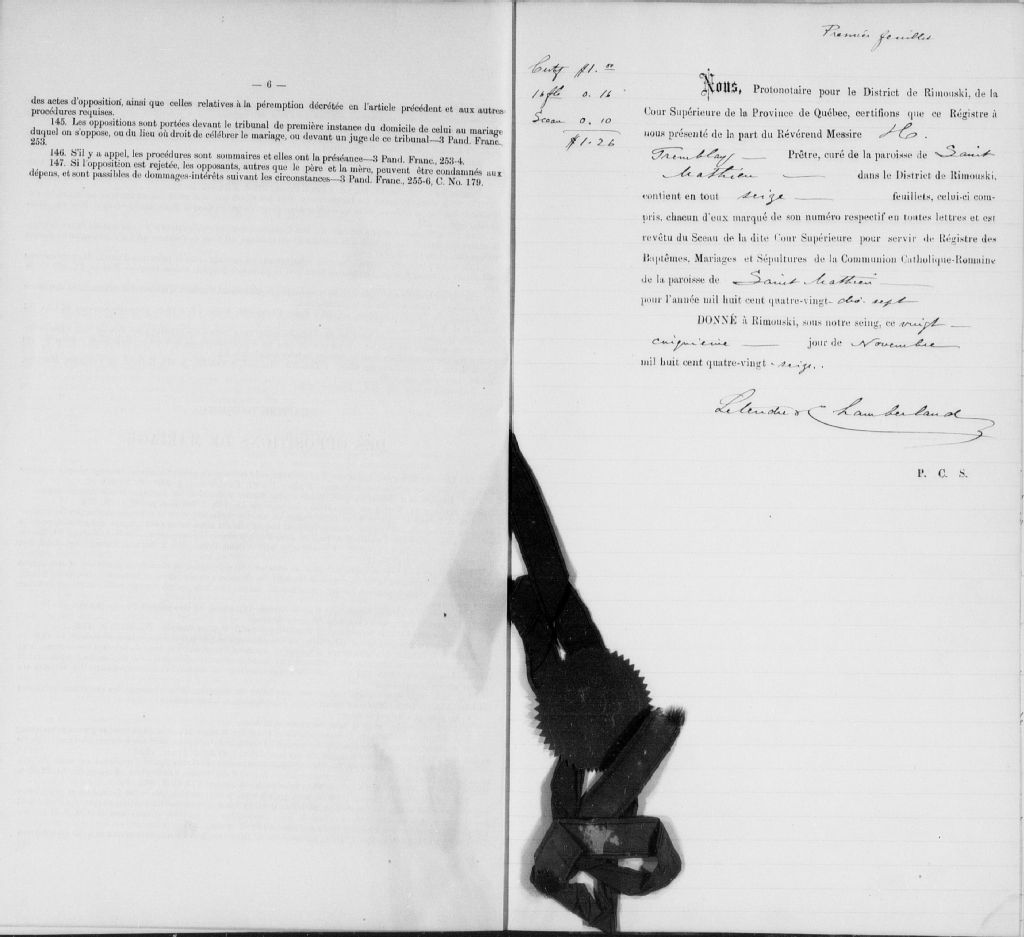 — 6 —
des actes d'opposition, ainsi que celles relatives à la péremption décrétée en l'article précédent et aux autres
procédures requises.
145. Les oppositions sont portées devant le tribunal de première instance du domicile de celui au mariage
duquel on s'oppose, ou du lieu où droit de célébrer le mariage, ou devant un juge de ce tribunal—3 Pand. Franc.
253.
146. S'il y a appel, les procédures sont sommaires et elles ont la préséance—3 Pand. Franc., 253-4.
147. Si l'opposition est rejetée, les opposants, autres que le père et la mère, peuvent être condamnés aux
dépens, et sont passibles de dommages-intérêts suivant les circonstances—3 Pand. Franc., 255-6, C. No. 179.
Premier feuillet
Certif $1.00
16 fls 0. 16
Sceau 0. 10
$1.26
Nous, Protonotaire pour le District de Rimouski, de la
Cour Supérieure de la Province de Québec, certifions que ce Régistre à
nous présenté de la part du Révérend Messire H.
Tremblay — Prêtre, curé de la paroisse de Saint
Mathieu — dans le District de Rimouski,
contient en tout seize — feuillets, celui-ci com-
pris, chacun d'eux marqué de son numéro respectif en toutes lettres et est
revêtu du Sceau de la dite Cour Supérieure pour servir de Régistre des
Baptêmes, Mariages et Sépultures de la Communion Catholique-Romaine
de la paroisse de Saint Mathieu —
pour l'année mil huit cent quatre-vingt- dix sept
DONNÉ à Rimouski, sous notre seing, ce vingt —
cinquième — jour de Novembre
mil huit cent quatre-vingt - seize.
Letendre & Chamberland
P. C. S.